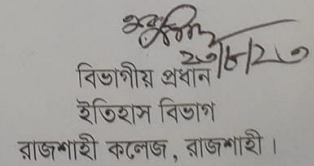 ২৩/৮/২৩
বিভাগীয় প্রধান
ইতিহাস বিভাগ
রাজশাহী কলেজ, রাজশাহী।